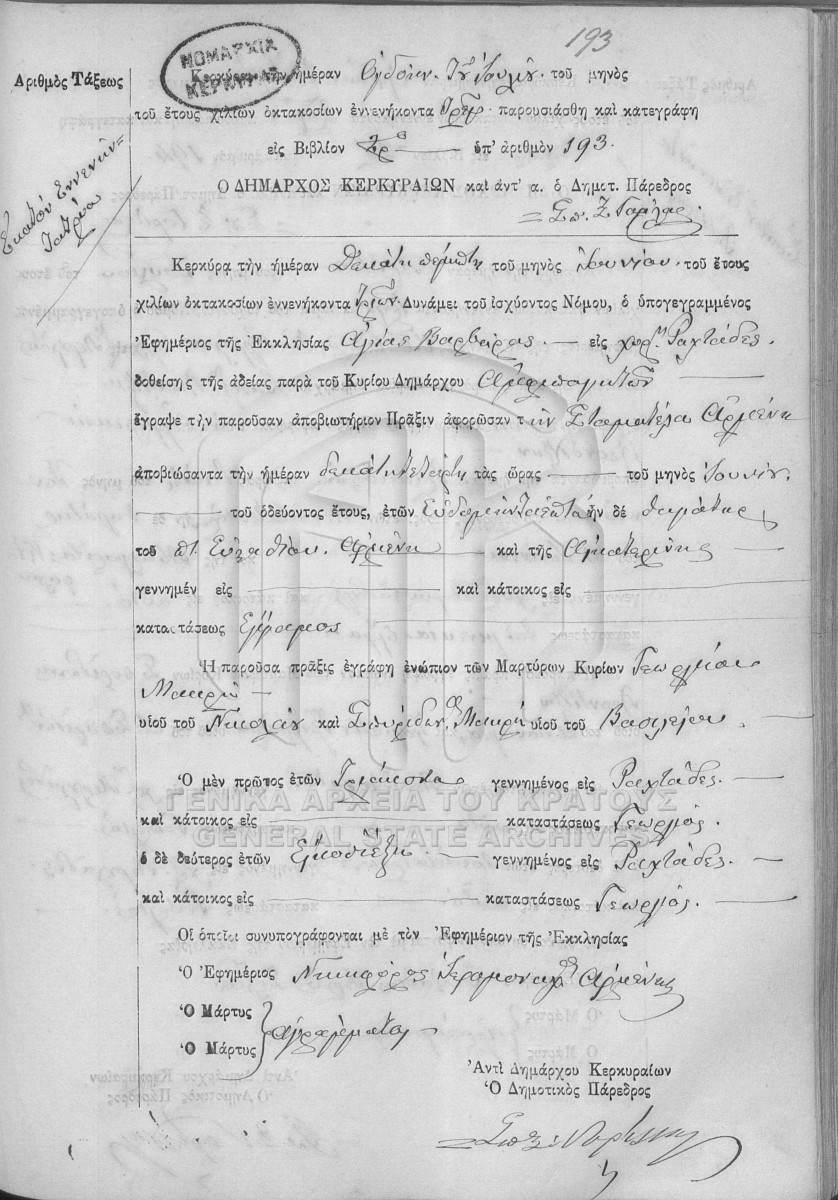 193
ΝΟΜΑΡΧΙΑ
ΚΕΡΚΥΡΑΣ
Ἀριθμὸς Τάξεως
Ἑκατὸν Ἐννενήν=
τατρία
Κερκύρᾳ τὴν ἡμέραν Ὀγδόην Ἰουλίου τοῦ μηνὸς
τοῦ ἔτους χιλίων ὀκτακοσίων ἐννενήκοντα παρουσιάσθη καὶ κατεγράφη
εἰς Βιβλίον ὑπ' ἀριθμὸν 193.
Ο ΔΗΜΑΡΧΟΣ ΚΕΡΚΥΡΑΙΩΝ καὶ ἀντ' α. ὁ Δημοτ. Πάρεδρος
Κερκύρᾳ τὴν ἡμέραν Δεκάτη πέμπτη τοῦ μηνὸς Ἰουνίου τοῦ ἔτους
χιλίων ὀκτακοσίων ἐννενήκοντα τριῶν Δυνάμει τοῦ ἰσχύοντος Νόμου, ὁ ὑπογεγραμμένος
Ἐφημέριος τῆς Ἐκκλησίας Ἁγίας Βαρβάρας εἰς χωρ. Ραχτάδες
δοθείσης τῆς ἀδείας παρὰ τοῦ Κυρίου Δημάρχου
ἔγραψε τὴν παροῦσαν ἀποβιωτήριον Πρᾶξιν ἀφορῶσαν τὴν Σταματέλα Ἀρμένη
ἀποβιώσαντα τὴν ἡμέραν δεκάτη τετάρτη τὰς ὥρας τοῦ μηνὸς Ἰουνίου
τοῦ ὁδεύοντος ἔτους, ἐτῶν Ἑβδομῆντα ἑπτὰ ἦν δέ θυγάτηρ
τοῦ Ἀρμένη καὶ τῆς Αἰκατερίνης
γεννημέν εἰς καὶ κάτοικος εἰς
καταστάσεως Ἔγγαμος
Ἡ παροῦσα πρᾶξις ἐγράφη ἐνώπιον τῶν Μαρτύρων Κυρίων Γεωργίου
Μακρῆ
υἱοῦ τοῦ Νικολάου καὶ Σπυρίδων. Μακρῆ υἱοῦ τοῦ Βασιλείου
Ὁ μὲν πρῶτος ἐτῶν Τριάκοντα γεννημένος εἰς Ραχτάδες
καὶ κάτοικος εἰς καταστάσεως Γεωργὸς
ΓΕΝΙΚΑ ΑΡΧΕΙΑ ΤΟΥ ΚΡΑΤΟΥΣ
GENERAL STATE ARCHIVES
ὁ δὲ δεύτερος ἐτῶν Εἰκοσιέξη γεννημένος εἰς Ραχτάδες
καὶ κάτοικος εἰς καταστάσεως Γεωργὸς
Οἱ ὁποῖοι συνυπογράφονται μὲ τὸν Ἐφημέριον τῆς Ἐκκλησίας
Ὁ Ἐφημέριος Νικηφόρος Ἱερομοναχ. Ἀρμένης
Ὁ Μάρτυς
ἀγράμματοι
Ὁ Μάρτυς
Ἀντὶ Δημάρχου Κερκυραίων
Ὁ Δημοτικὸς Πάρεδρος